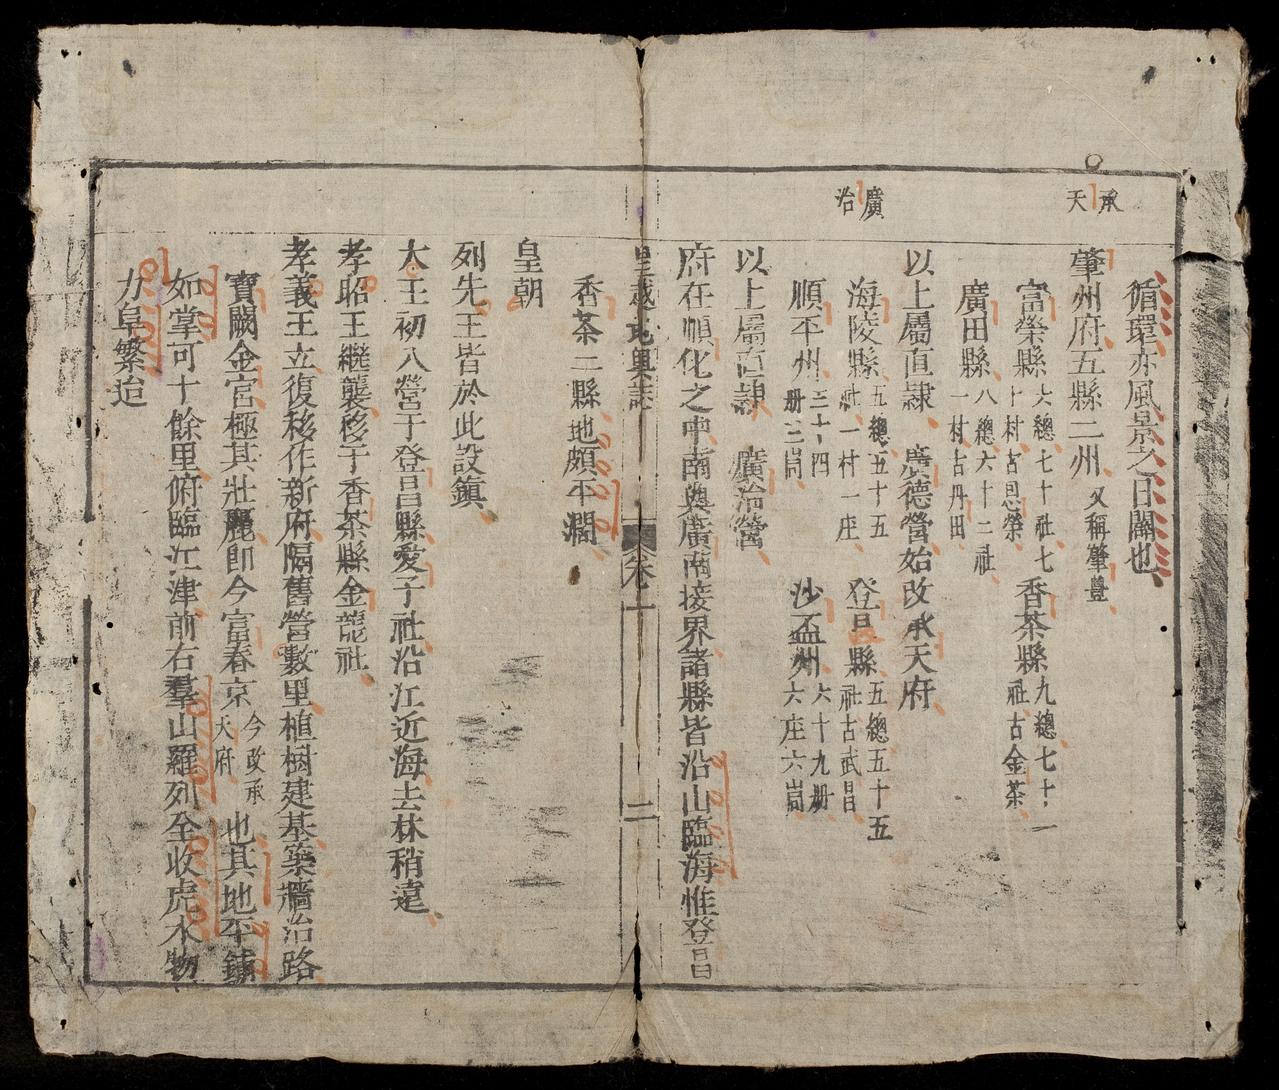 承天
循環亦風景之日闢也
肇州府五縣二州 又稱肇豐
富榮縣 六總七十社七十村古思榮 香茶縣 九總七十一社古金茶
廣田縣 八總六十二社一村古丹田
以上屬直隸 廣德營始改承天府
廣治
海陵縣 五總五十五社一村一座 登昌縣 五總五十五社古武昌
順平州 三十四册三峝 沙盃州 六十九册六庄六峝
以上屬直隸 廣治營
府在順化之中南與廣南接界諸縣皆沿山臨海惟登昌
皇越地輿誌 卷一 二
香茶二縣地頗平濶
皇朝
列先王皆於此設鎮
太王初入營于登昌縣愛子社沿江近海去林稍遠
孝昭王繼襲移于香茶縣金龍社
孝義王立復移作新府隔舊營數里植樹建基築牆治路
寶闕金宮極其壯麗卽今富春京 今改承天府 也其地平鋪
如掌可十餘里俯臨江津前右羣山羅列全收虎水物
力阜繁迨